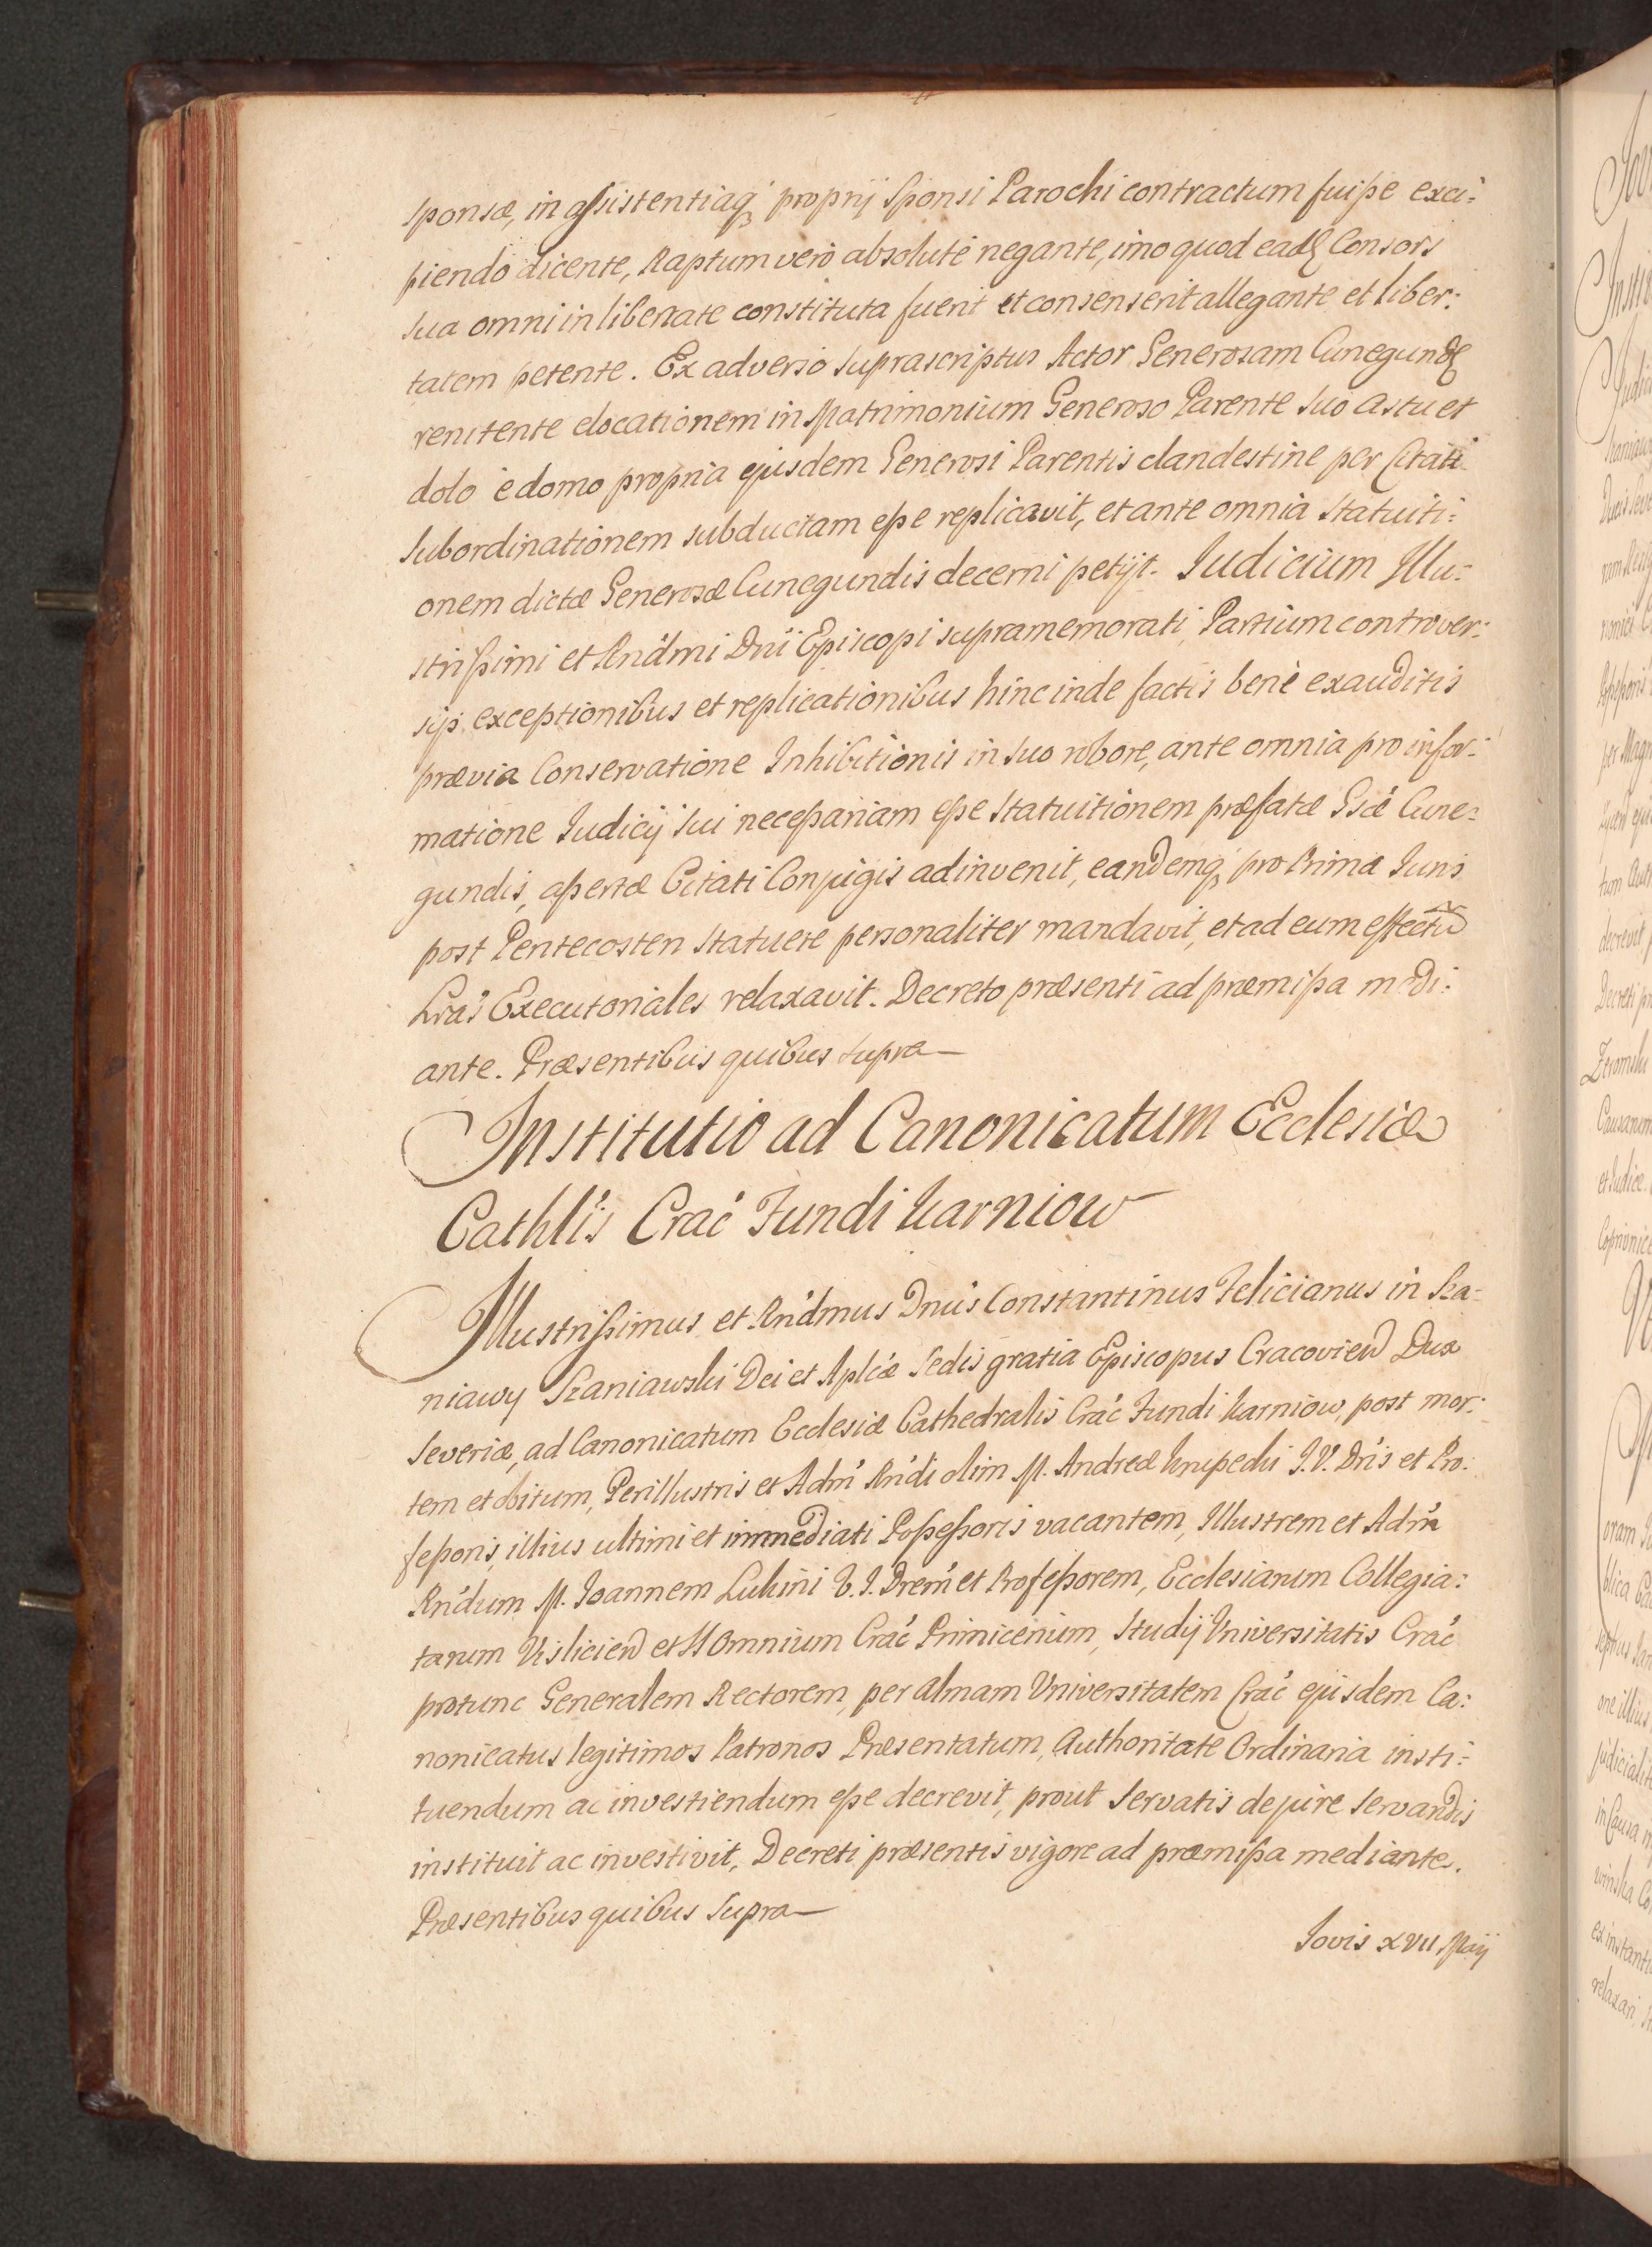 sponsæ, in assistentiaq; proprij Sponsi Parochi contractum fuisse exci:
piendo dicente, Raptum verò absolutè negante, imo quod ead Consors
sua omni in libertate constituta fuerit et consenserit allegante et liber:
tatem petente. Ex adverso suprascriptus Actor Generosam Cunegund
renitente elocationem in Matrimonium Generoso Parente suo astu et
dolo è domo propria ejusdem Generosi Parentis clandestine per Citati
subordinationem subductam esse replicavit, et ante omnia statuiti:
onem dictæ Generosæ Cunegundis decerni petijt. Judicium Illu:
strissimi et Rndmi Dni Episcopi supramemorati, Partium controver:
sijs, exceptionibus et replicationibus hinc inde factis benè exauditis
prævia Conservatione Inhibitionis in suo robore, ante omnia pro infor:
matione Judicij sui necessariam esse statuitionem præfatæ Gsæ Cune:
gundis, assertæ Citati Conjugis adinvenit, eandemq; pro Prima Juris
post Pentecosten statuere personaliter mandavit, et ad eum effectũ
Lras Executoriales relaxavit. Decreto præsenti ad præmissa medi:
ante. Præsentibus quibus supra
Institutio ad Canonicatum Ecclesiæ
Cathlis Crac Fundi Karniow
Illustrissimus et Rndmus Dnus Constantinus Felicianus in Sza:
niawy Szaniawski Dei et Aplicæ Sedis gratia Episcopus Cracovien Dux
Severiæ, ad Canonicatum Ecclesiæ Cathedralis Crac Fundi Karniow, post mor:
tem et obitum, Perillustris et Adm Rndi olim M. Andreæ Krupecki J.V. Dris et Pro:
fessoris, illius ultimi et immediati Possessoris vacantem, Illustrem et Adm
Rndum M. Joannem Lukini V.J. Drem et Professorem, Ecclesiarum Collegia:
tarum Vislicien et SS Omnium Crac Primicerium, Studij Universitatis Crac
protunc Generalem Rectorem, per Almam Universitatem Crac ejusdem Ca:
nonicatus legitimos Patronos Præsentatum, Authoritate Ordinaria insti:
tuendum ac investiendum esse decrevit, prout servatis de jure servandis
instituit ac investivit, Decreti præsentis vigore ad præmissa mediante.
Præsentibus quibus supra
Jovis XVII Maij